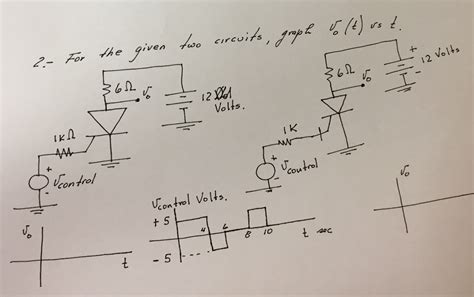 2.- For the given two circuits, graph vo(t) vs t.
6Ω
vo
12
Volts.
1KΩ
Vcontrol
+
-
6Ω
vo
+
12 Volts
-
1K
+
Vcontrol
-
Vcontrol Volts.
+5
4 6 8 10
t sec
-5
vo
t
vo